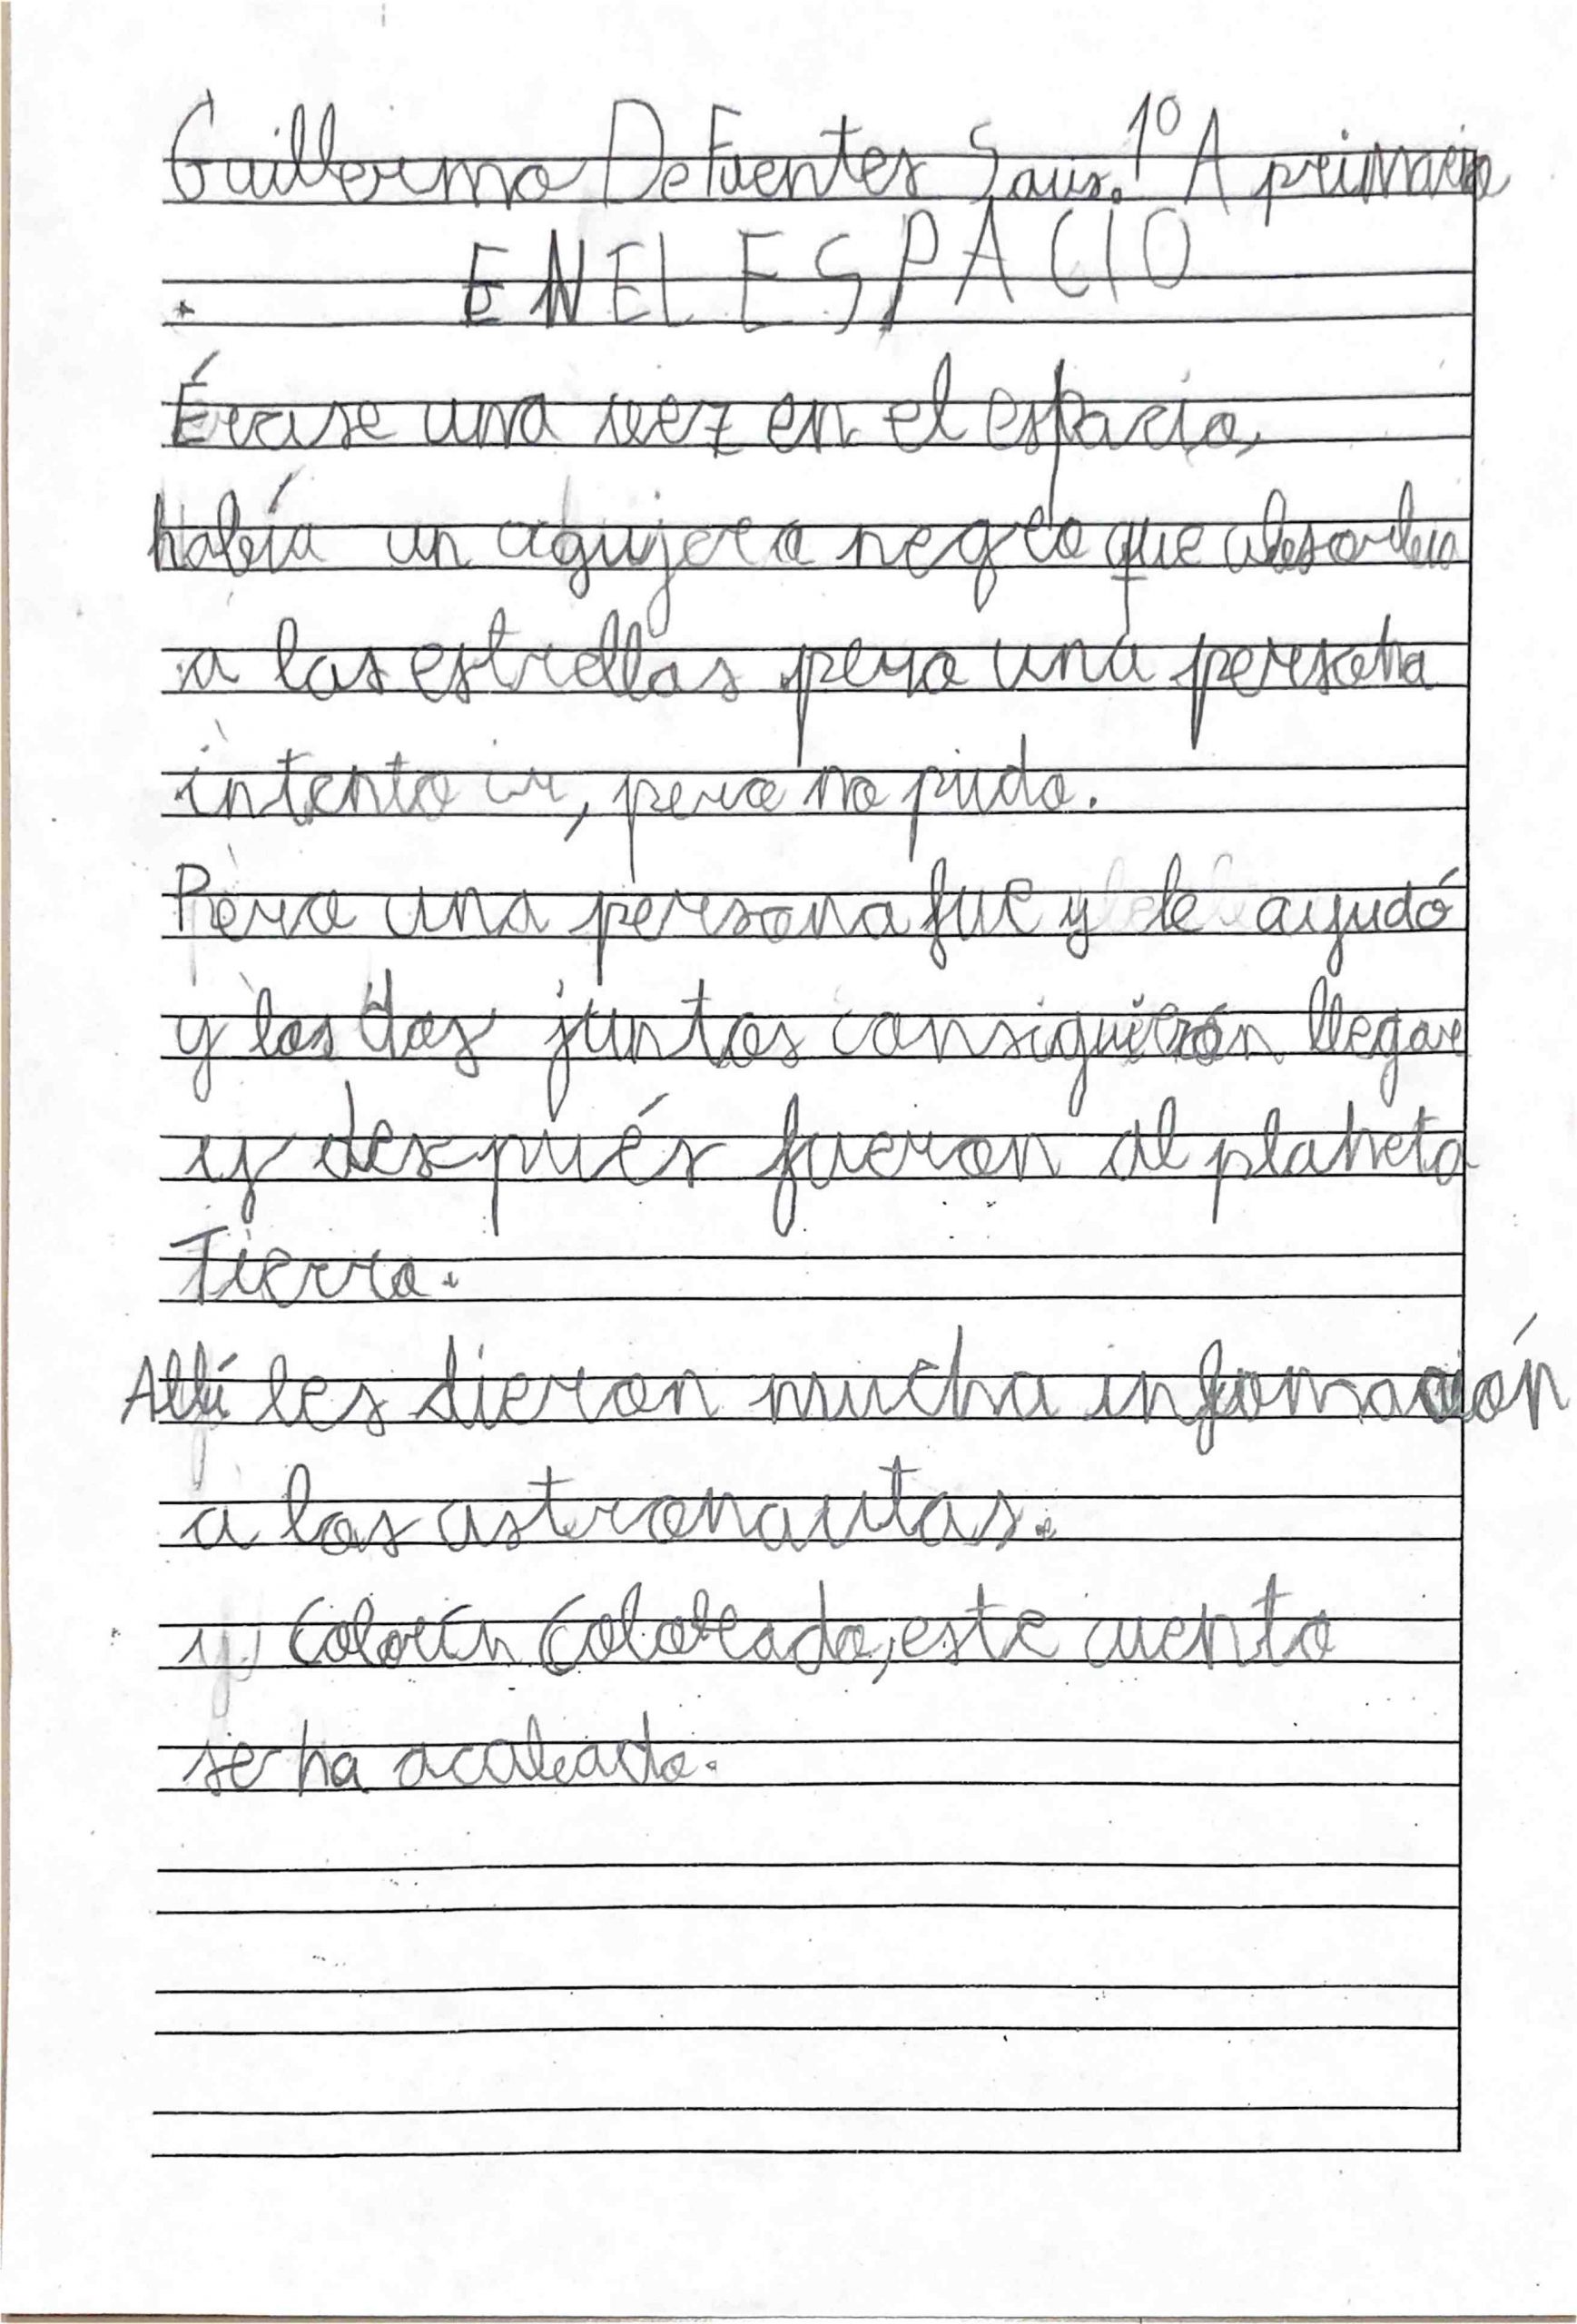 Guillermo De Fuentes Saus. 1º A primaria
EN EL ESPACIO
Érase una vez en el espacio,
había un agujero negro que absorbia
a las estrellas pero una persona
intento ir, pero no pudo.
Pero una persona fue y le ayudó
y los dos juntos consiguieron llegar
y después fueron al planeta
Tierra.
Allí les dieron mucha infomación
a los astronautas.
y Colorín Colorado, este cuento
se ha acabado.